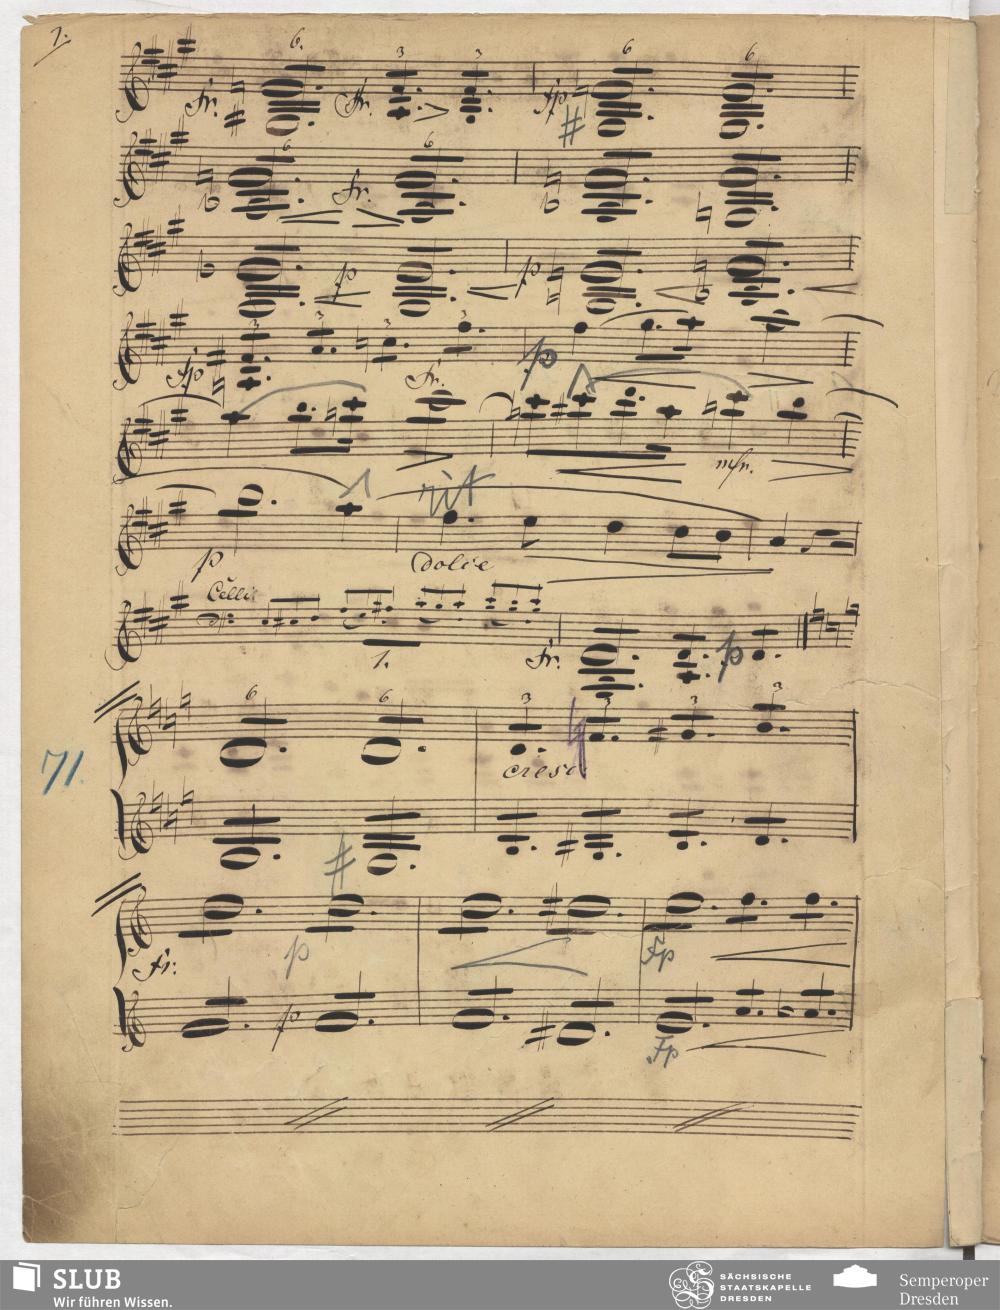 7.
6. 3 3 6 6
fr. fr. fp
6 6
fr.
p p
3 3 3 3
fp fr. p
mfr.
1 rit
p dolce
Celli
1. fr. p
6 6 3 3 3 3
71. cresc
fr. p Fp
p Fp
SLUB
Wir führen Wissen.
SÄCHSISCHE
STAATSKAPELLE
DRESDEN
Semperoper
Dresden